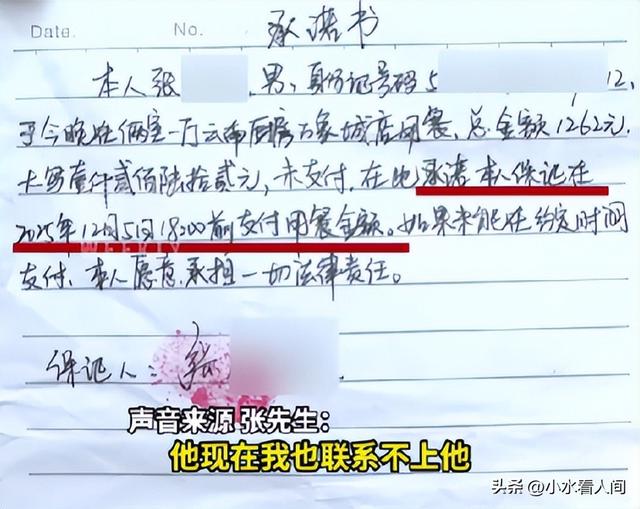 Date. No. 承诺书
本人张 男,身份证号码5 12,
于今晚在俩室一厅云南厨房万象城店用餐,总金额1262元,
大写壹仟贰佰陆拾贰元,未支付,在此承诺本人保证在
2025年12月5日18:00前支付用餐金额。如果未能在约定时间
支付、本人愿意承担一切法律责任。
WEEKLY
保证人:张
声音来源 张先生:
他现在我也联系不上他
头条 @小水看人间